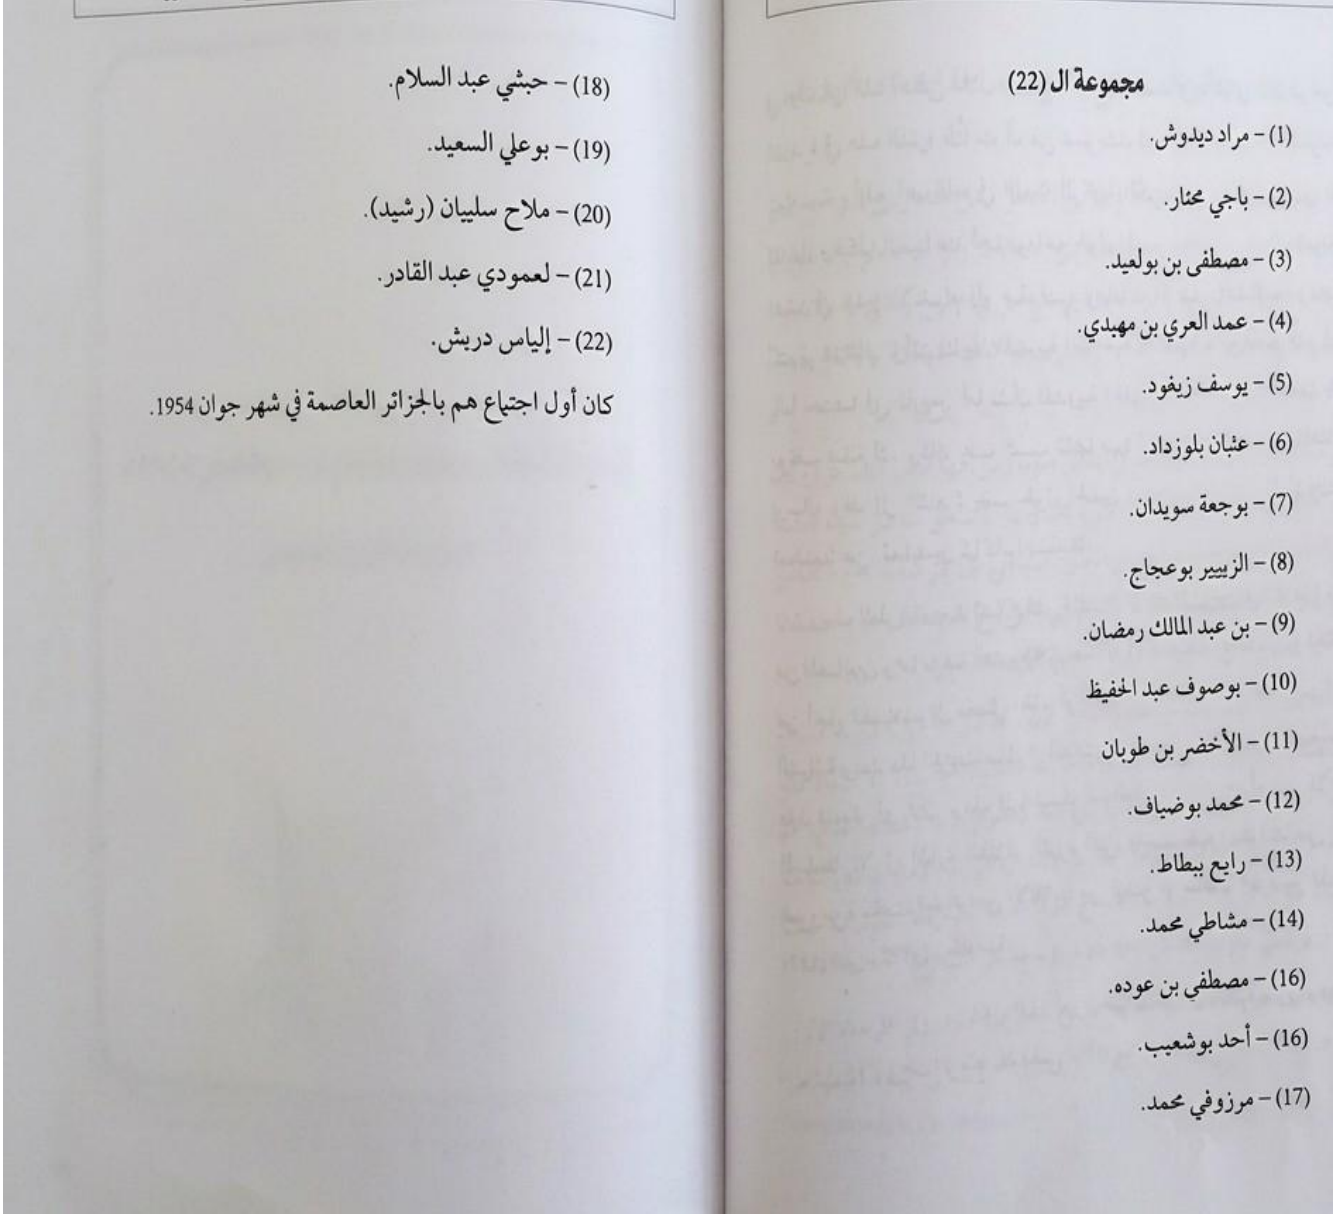 مجموعة ال (22)
(1) – مراد ديدوش.
(2) – باجي مختار.
(3) – مصطفى بن بولعيد.
(4) – عمد العري بن مهيدي.
(5) – يوسف زيغود.
(6) – عثمان بلوزداد.
(7) – بوجعة سويدان.
(8) – الزبير بوعجاج.
(9) – بن عبد المالك رمضان.
(10) – بوصوف عبد الحفيظ
(11) – الأخضر بن طوبان
(12) – محمد بوضياف.
(13) – رايع ببطاط.
(14) – مشاطي محمد.
(16) – مصطفي بن عوده.
(16) – أحد بوشعيب.
(17) – مرزوفي محمد.
(18) – حبشي عبد السلام.
(19) – بوعلي السعيد.
(20) – ملاح سليمان (رشيد).
(21) – لعمودي عبد القادر.
(22) – إلياس دريش.
كان أول اجتماع هم بالجزائر العاصمة في شهر جوان 1954.